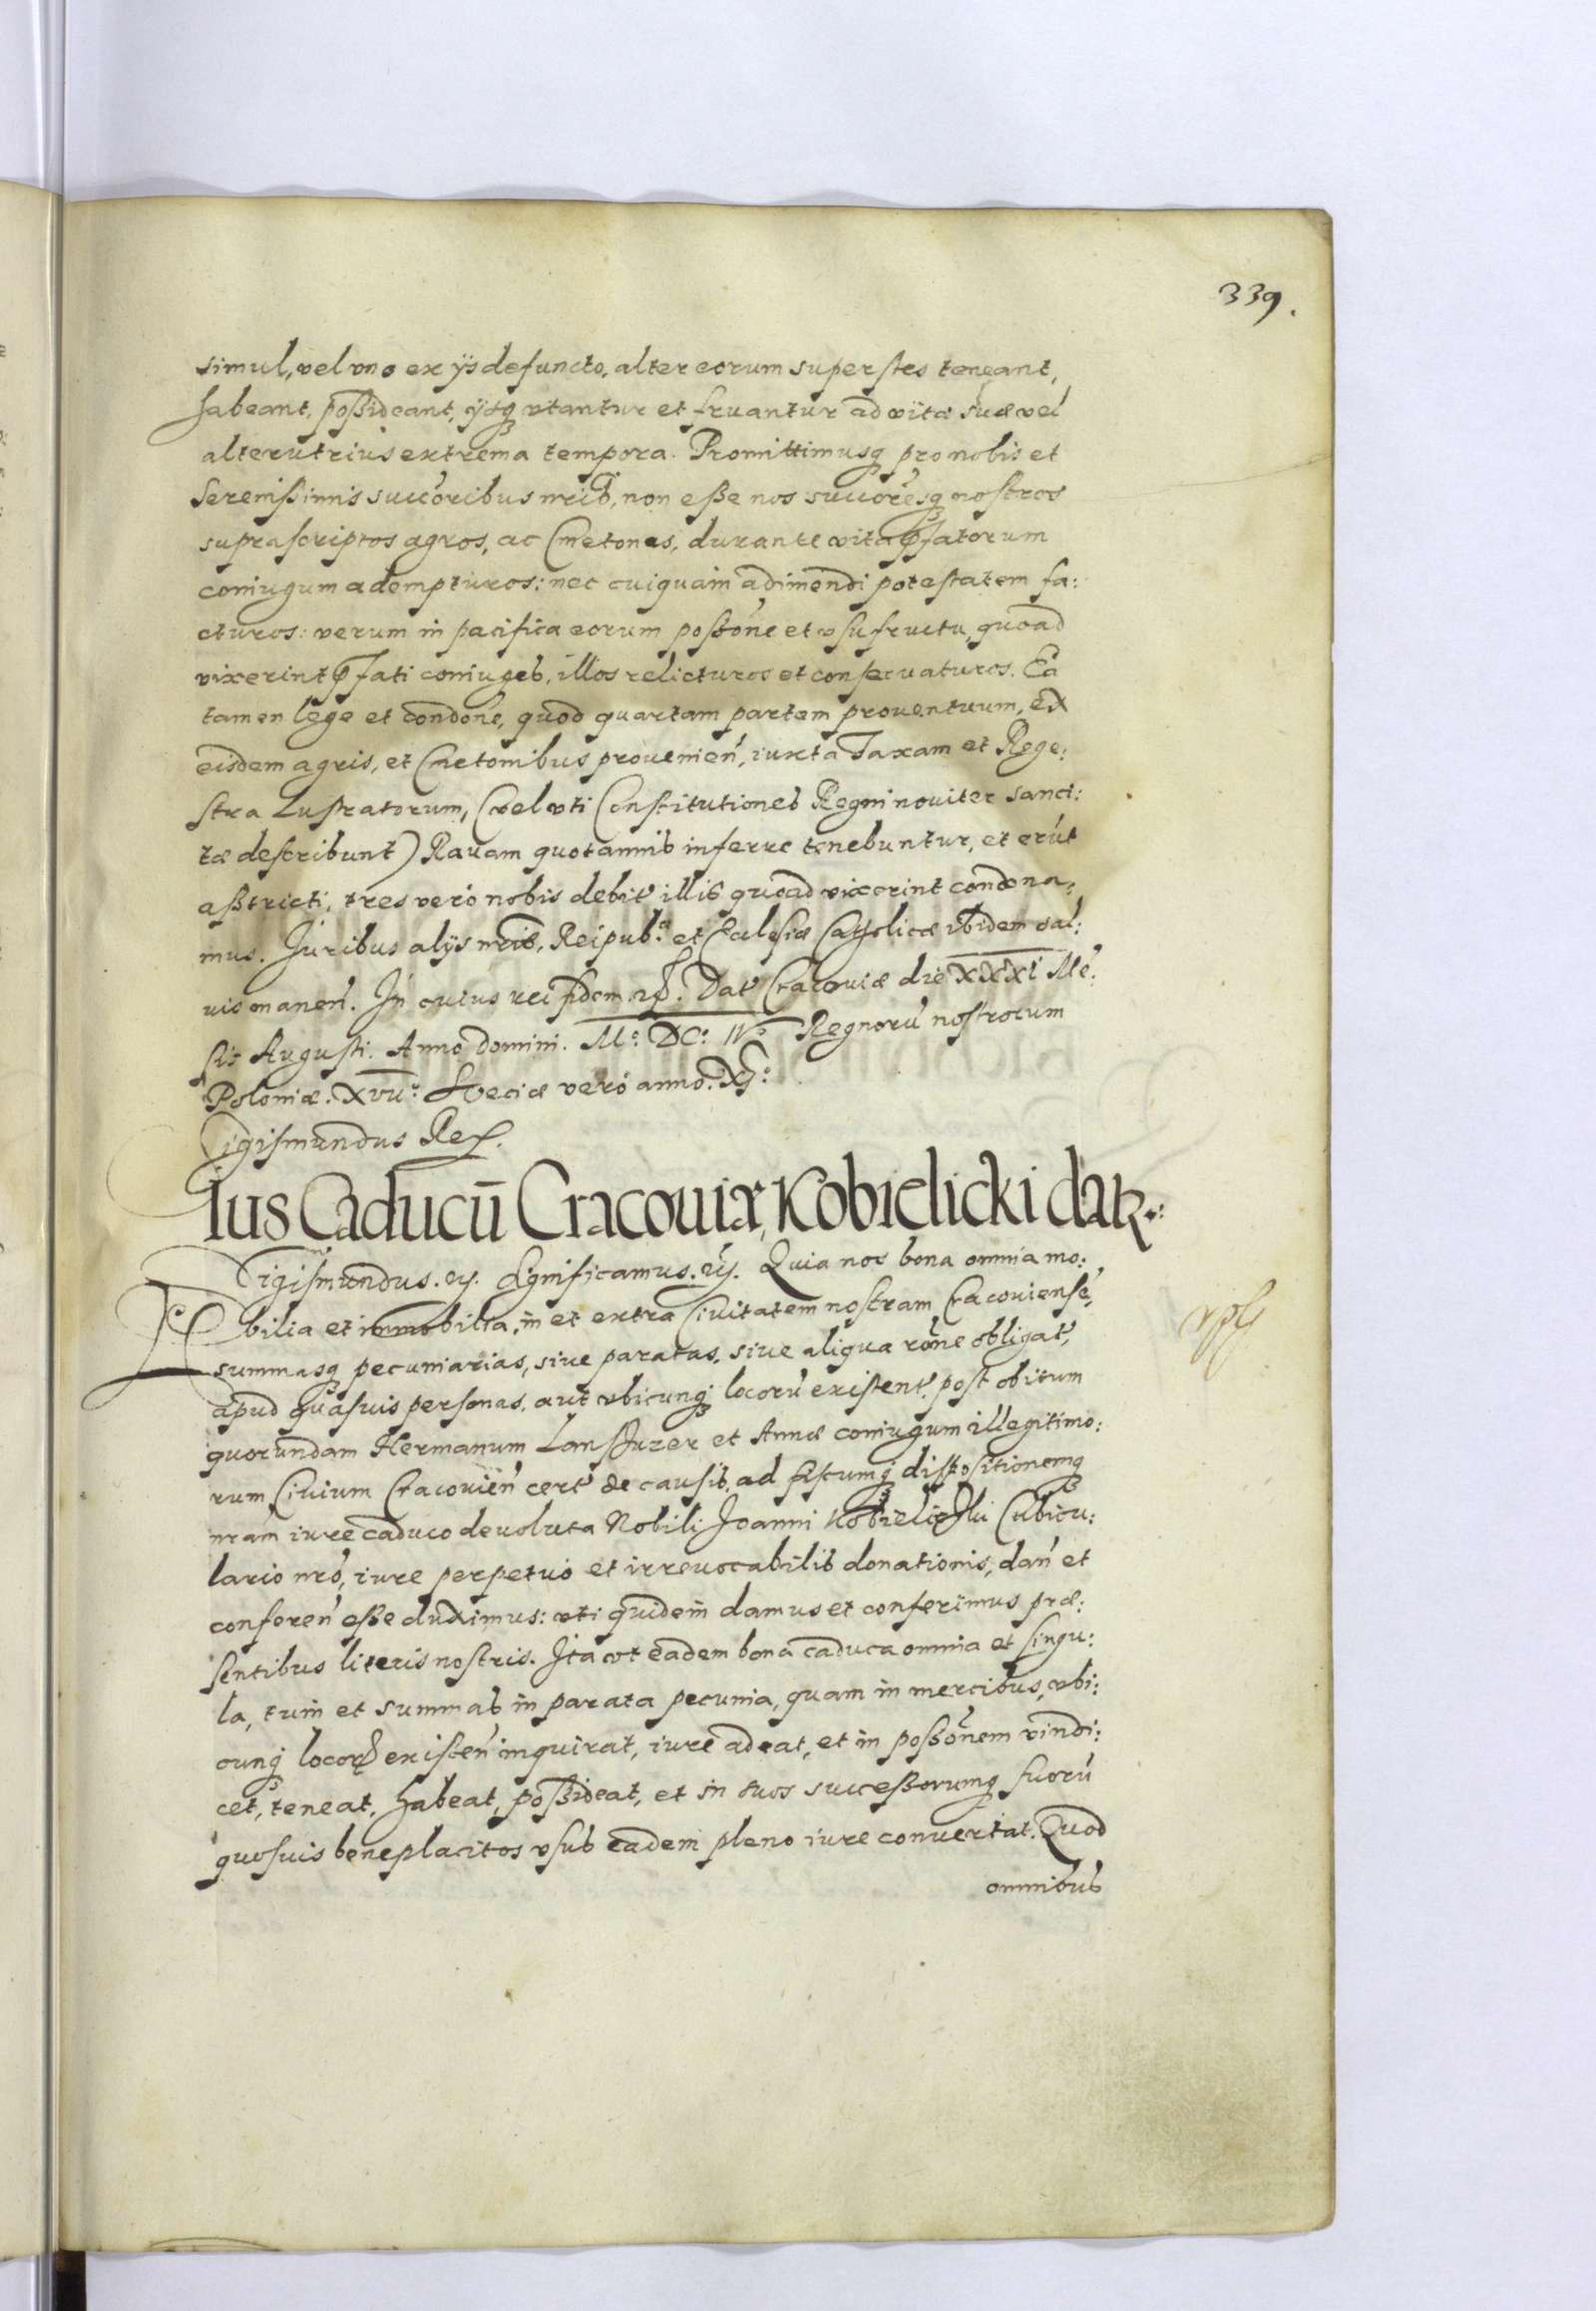 339.
simul, vel uno ex ijs defuncto, alter eorum superstes teneant,
habeant, possideant, ijsq̃ utantur et fruantur ad vitæ suæ vel
alterutrius extrema tempora. Promittimusq̃ pro nobis et
Serenissimis succõribus nr̃is, non esse nos succõresq̃ nostros
suprascriptos agros, ac Cmetones, durante vita p̃fatorum
coniugum adempturos: nec cuiquam adimendi potestatem fa:
cturos: verum in pacifica eorum possõne et usufructu, quoad
vixerint p̃fati coniuges, illos relicturos et conservaturos. Ea
tamen lege et condõne, quod quartam partem proventuum, ex
eisdem agris, et Cmetonibus provenien̄, iuxta Taxam et Rege:
stra Lustratorum, (vel uti Constitutiones Regni noviter sanci:
tæ describunt) Ravam quotannis inferre tenebuntur, et erũt
astricti, tres vero nobis debit̃ illis quoad vixerint condona:
mus. Juribus alijs nr̃is, Reipub:ᶜᵃ et Ecclesiæ Catholicæ ibidem sal:
vis manen̄. In cuius rei fidem. Dat̃ Cracoviæ die XXXI Mẽ:
sis Augusti. Anno domini. M.° DC.° IV.° Regnorũ nostrorum
Poloniæ. XVII.° Sveciæ vero anno. XI.°
Sigismundus Rex.
Ius Caducũ Cracoviæ, Kobielicki datr.:
Sigismundus. Significamus. Quia nos bona omnia mo:
bilia et immobilia, in et extra Civitatem nostram Cracoviensẽ,
summasq̃ pecuniarias, sive paratas, sive aliqua rõne obligat̃,
apud quasvis personas, aut ubicunq̃ locorũ existent̃ post obitum
quorundam Hermanum et Annæ coniugum illegitimo:
rum Civium Cracovien̄ cert̃ de causis, ad fiscumq̃ dispositionemq̃
nr̃am iure caduco devoluta Nobili Joanni Kobielicki Cubicu:
lario nr̃o, iure perpetuo et irrevocabilis donationis, dan̄ et
conferen̄ esse duximus: uti quidem damus et conferimus præ:
sentibus literis nostris. Ita ut eadem bona caduca omnia et singu:
la, tum et summas in parata pecunia, quam in mercibus, ubi:
cunq̃ locorꝫ existen̄ inquirat, iure adeat, et in possõnem vindi:
cet, teneat, habeat, possideat, et in suos successorumq̃ suorũ
quosvis beneplacitos usus eadem pleno iure convertat. Quod
omnibus